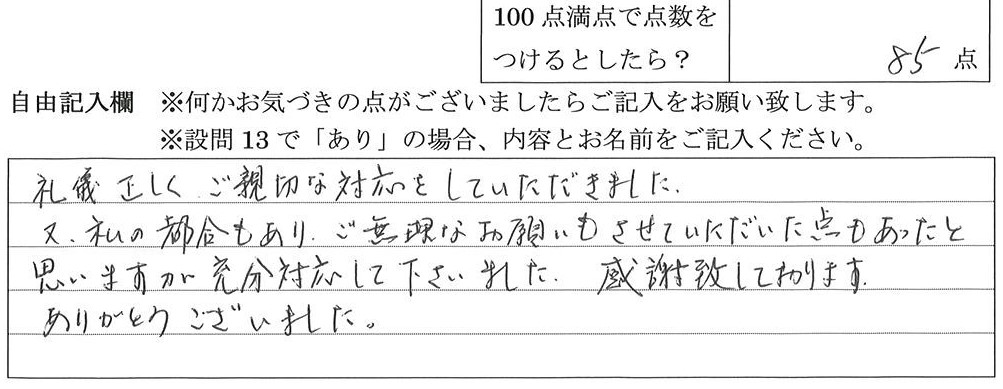 100 点満点で点数を
つけるとしたら？
85 点
自由記入欄 ※何かお気づきの点がございましたらご記入をお願い致します。
※設問 13 で「あり」の場合、内容とお名前をご記入ください。
礼儀正しくご親切な対応をしていただきました.
又、私の都合もあり、ご無理なお願いもさせていただいた点もあったと
思いますが充分対応して下さいました. 感謝致しております.
ありがとうございました。